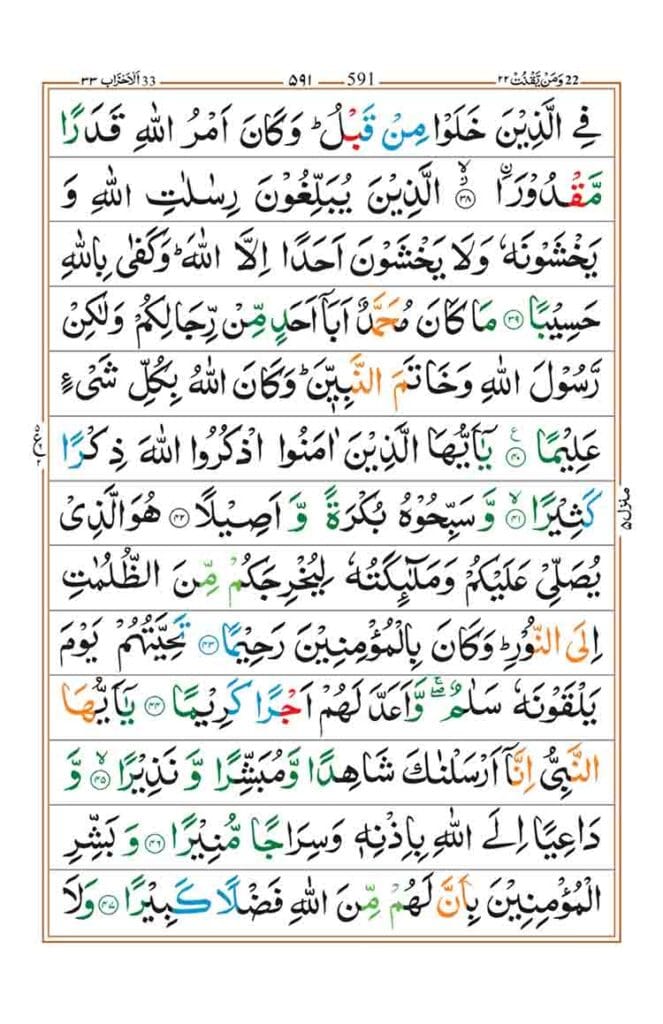 22 وَمَنْ يَّقْنُتْ ٢٢ 591 ٥٩١ اَلْاَحْزَاب 33 ٣٣
فِی الَّذِیْنَ خَلَوْا مِنْ قَبْلُ ؕ وَ کَانَ اَمْرُ اللّٰهِ قَدَرًا
مَّقْدُوْرَا ۣۙ﴿۳۸﴾ الَّذِیْنَ یُبَلِّغُوْنَ رِسٰلٰتِ اللّٰهِ وَ
یَخْشَوْنَهٗ وَلَا یَخْشَوْنَ اَحَدًا اِلَّا اللّٰهَ ؕ وَکَفٰی بِاللّٰهِ
حَسِیْبًا ﴿۳۹﴾ مَا کَانَ مُحَمَّدٌ اَبَاۤ اَحَدٍ مِّنْ رِّجَالِکُمْ وَلٰکِنْ
رَّسُوْلَ اللّٰهِ وَخَاتَمَ النَّبِیّٖنَ ؕ وَکَانَ اللّٰهُ بِکُلِّ شَیْءٍ
عَلِیْمًا ﴿۴۰﴾ ع یٰۤاَیُّهَا الَّذِیْنَ اٰمَنُوا اذْکُرُوا اللّٰهَ ذِکْرًا
کَثِیْرًا ﴿ۙ۴۱﴾ وَّ سَبِّحُوْهُ بُکْرَةً وَّ اَصِیْلًا ﴿۴۲﴾ هُوَ الَّذِیْ
یُصَلِّیْ عَلَیْکُمْ وَمَلٰٓئِکَتُهٗ لِیُخْرِجَکُمْ مِّنَ الظُّلُمٰتِ
اِلَی النُّوْرِ ؕ وَکَانَ بِالْمُؤْمِنِیْنَ رَحِیْمًا ﴿۴۳﴾ تَحِیَّتُهُمْ یَوْمَ
یَلْقَوْنَهٗ سَلٰمٌ ۖۚ وَّاَعَدَّ لَهُمْ اَجْرًا کَرِیْمًا ﴿۴۴﴾ یٰۤاَیُّهَا
النَّبِیُّ اِنَّاۤ اَرْسَلْنٰكَ شَاهِدًا وَّمُبَشِّرًا وَّ نَذِیْرًا ﴿ۙ۴۵﴾ وَّ
دَاعِیًا اِلَی اللّٰهِ بِاِذْنِهٖ وَسِرَاجًا مُّنِیْرًا ﴿۴۶﴾ وَ بَشِّرِ
الْمُؤْمِنِیْنَ بِاَنَّ لَهُمْ مِّنَ اللّٰهِ فَضْلًا کَبِیْرًا ﴿۴۷﴾ وَلَا
منزل ۵